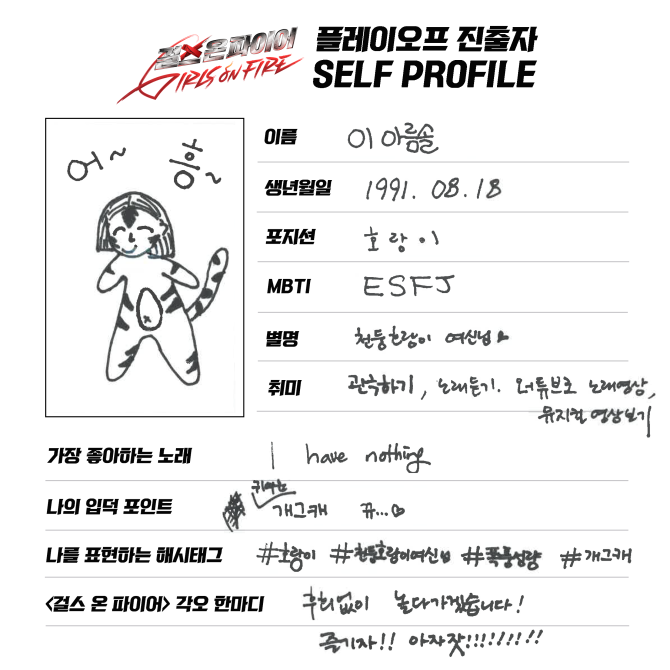 걸스온파이어
GIRLS ON FIRE
플레이오프 진출자
SELF PROFILE
어~ 흥~
이름 이아름솔
생년월일 1991. 08. 18
포지션 호랑이
MBTI ESFJ
별명 천둥호랑이 여신님
취미 관측하기, 노래듣기. 유튜브로 노래영상,
뮤지컬 영상보기
가장 좋아하는 노래 I have nothing
귀여운
나의 입덕 포인트 개그캐 뀨...♡
나를 표현하는 해시태그 #호랑이 #천둥호랑이여신님 #폭풍성량 #개그캐
<걸스 온 파이어> 각오 한마디 후회없이 놀다가겠습니다!
즐기자!! 아자잣!!!!!!!!!